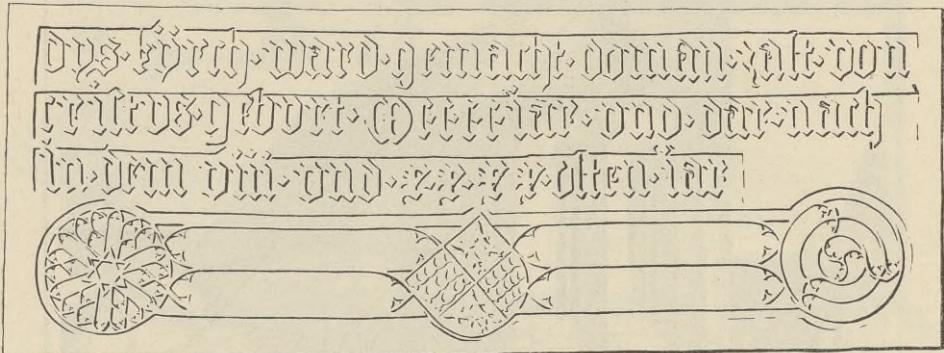 dys·kÿrch·ward·gemacht·doman·zalt·von
cristvs·gebvrt·M·c·c·c·iar·vnd·dar·nach
in·dem viii·vnd·xx·xx·osten·iar